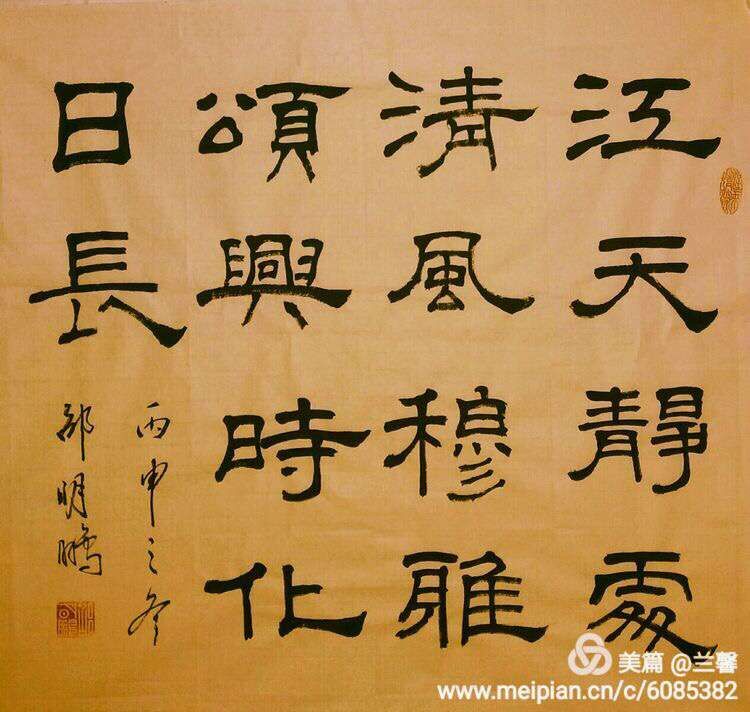 江天靜處
清風穆雅
頌興時化
日長
丙申之冬
邰明鵬
美篇 @兰馨
www.meipian.cn/c/6085382